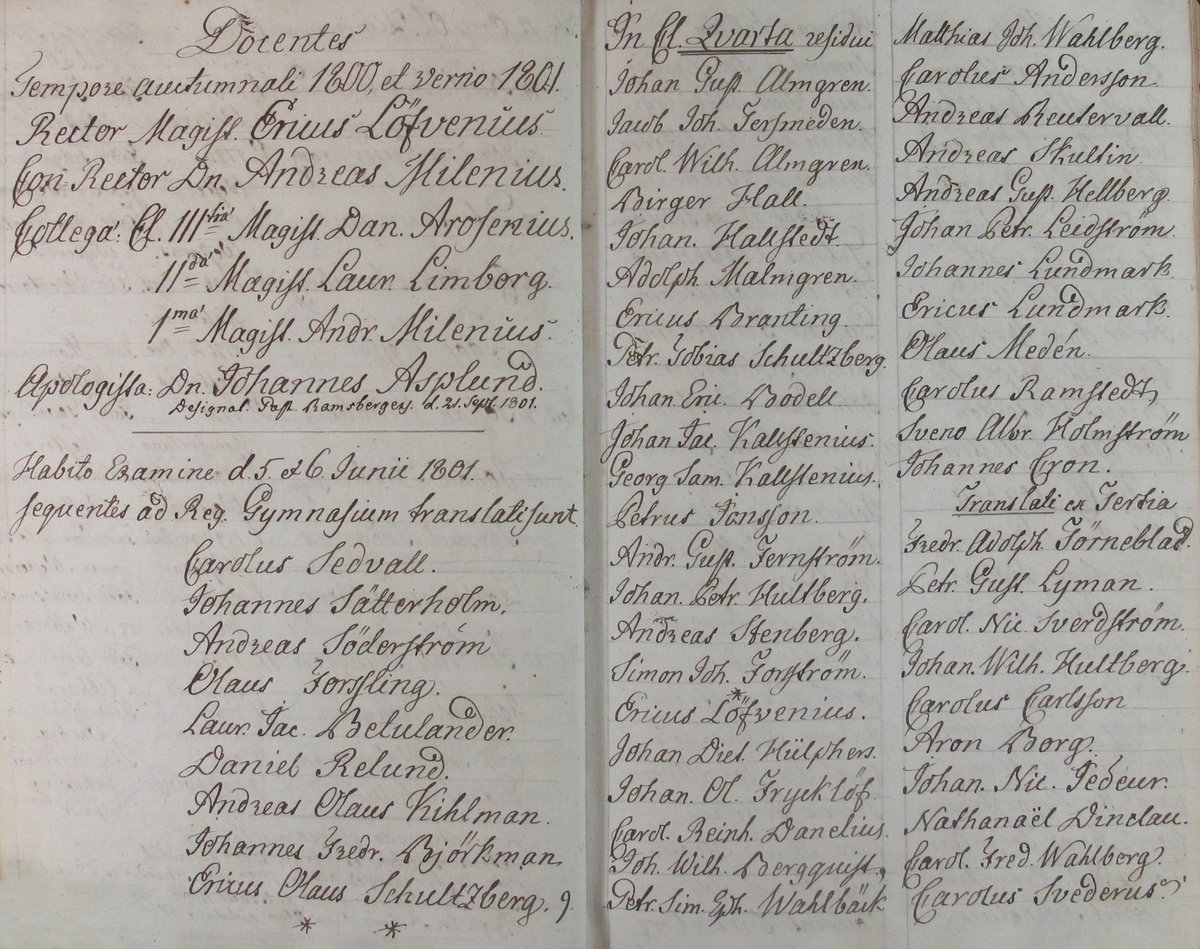 Docentes
Tempore auctumnali 1800, et verno 1801.
Rector Magist. Ericus Löfvenius
Con-Rector Dn. Andreas Milenius.
Collega: Cl. III tia Magist. Dan. Arosenius.
II da Magist. Laur. Limborg.
I ma Magist. Andr. Milenius.
Apologista: Dn. Johannes Asplund.
Designat. Past. Ramsbergens. d. 21. Sept. 1801.
Habito Examine d. 5. et 6. Junii 1801.
sequentes ad Reg. Gymnasium translati sunt
Carolus Sedvall.
Johannes Sätterholm.
Andreas Söderström
Olaus Forssling.
Laur. Jac. Betulander.
Daniel Relund.
Andreas Olaus Kihlman.
Johannes Fredr. Björkman.
Ericus Olaus Schultzberg. 9.
* *
In Cl. Qvarta residui
Johan Gust. Almgren.
Jacob Joh. Tersmeden.
Carol. Wilh. Almgren.
Birger Hall.
Johan. Hallstedt
Adolph Malmgren.
Ericus Branting.
Petr. Tobias Schultzberg.
Johan Eric. Bodell
Johan Jac. Kallstenius.
Georg Sam. Kallstenius.
Petrus Jansson.
Andr. Gust. Fernström.
Johan. Petr. Hultberg.
Andreas Stenberg.
Simon Joh. Forström.
Ericus Löfvenius.
Johan Diet. Hülphers.
Johan. Ol. Frycklöf
Carol. Reinh. Danelius.
Joh. Wilh. Bergquist.
Petr. Sim. Eph. Wahlbäck
Matthias Joh. Wahlberg.
Carolus Andersson
Andreas Reutervall.
Andreas Skultin
Andreas Gust. Hellberg.
Johan Petr. Leidström.
Johannes Lundmark.
Ericus Lundmark.
Olaus Medén.
Carolus Ramstedt,
Sveno Albr. Holmström
Johannes Cron.
Translati ex Tertia
Fredr. Adolph. Törneblad.
Petr. Gust. Lyman.
Carol. Nic. Sverdström.
Johan. Wilh. Hultberg.
Carolus Carlsson
Aron Borg.
Johan. Nic. Tedeur.
Nathanaël Dinclau.
Carol. Fred. Wahlberg.
Carolus Svederus.